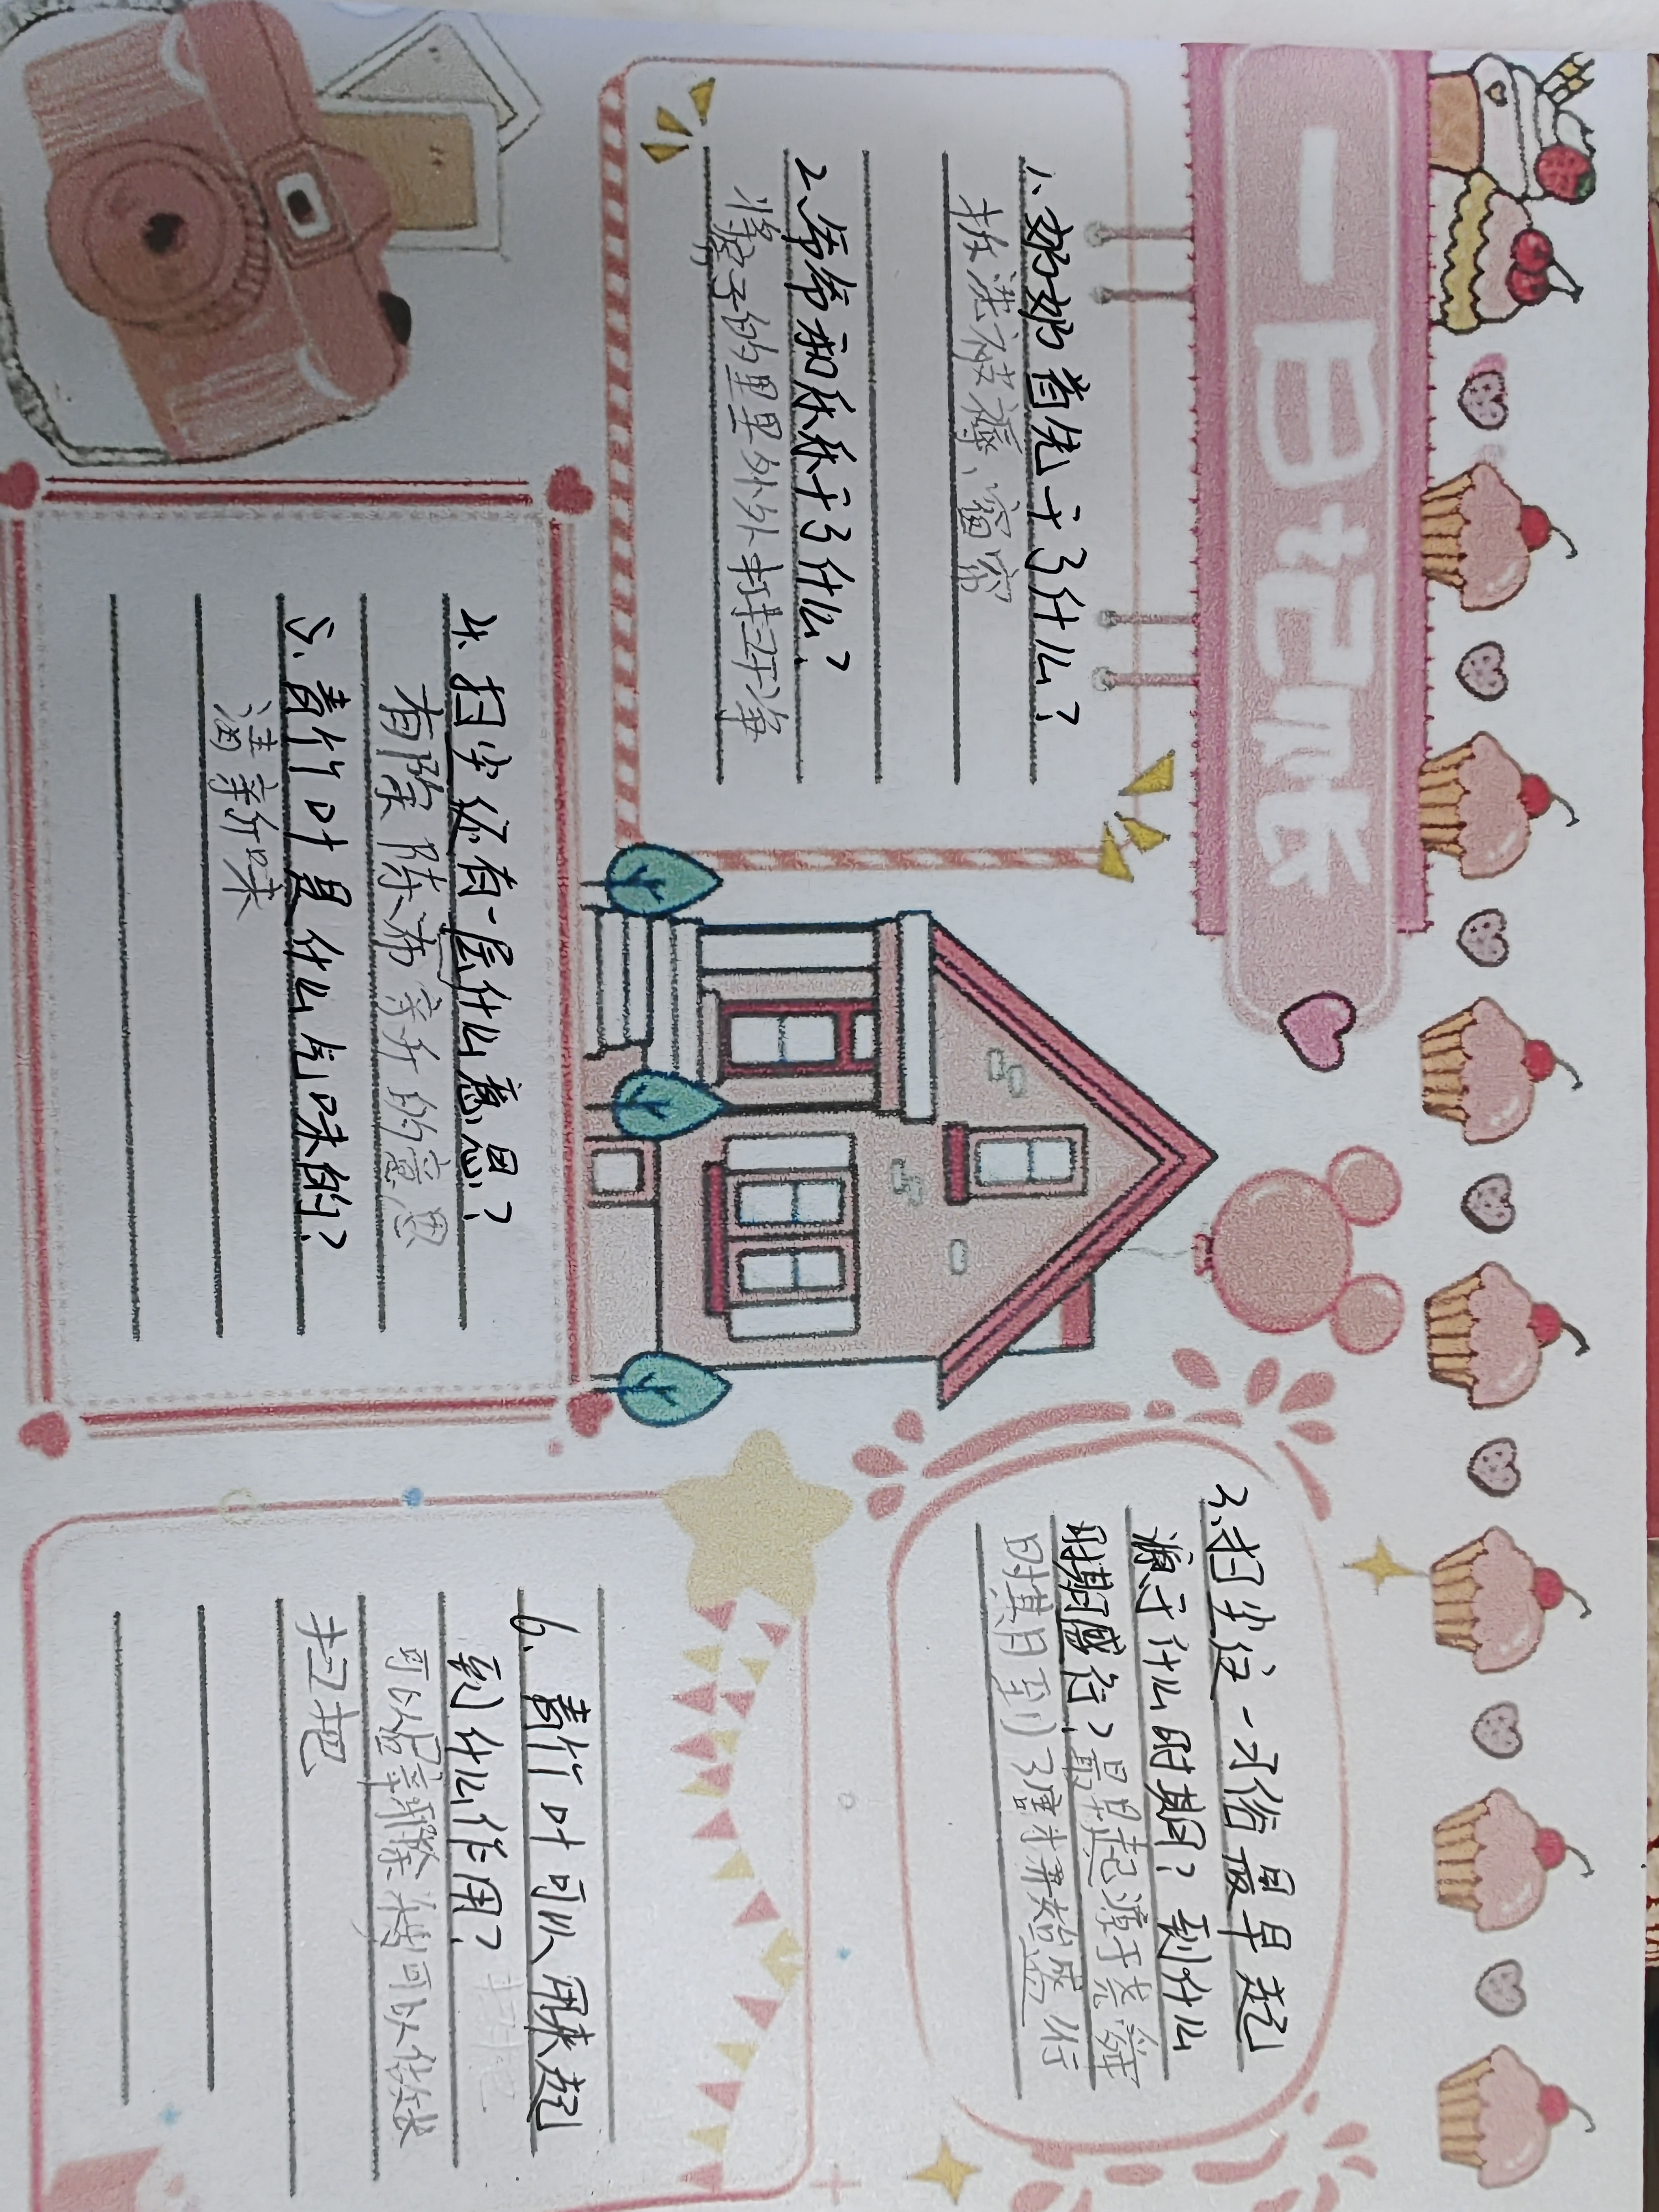 一日记
1、奶奶首先干了什么?
拆洗被褥、窗帘
2、爷爷和干了什么?
将房子的里里外外打扫干净
3、扫尘这一习俗最早起
源于什么时期?到什么
时期盛行?最早起源于尧舜
时期到了开始盛行
4、扫尘还有一层什么意思?
有除陈布新的意思
5、青竹叶是什么气味的?
清新味
6、青竹叶可以用来起
到什么作用?
可以除可以做成
扫把